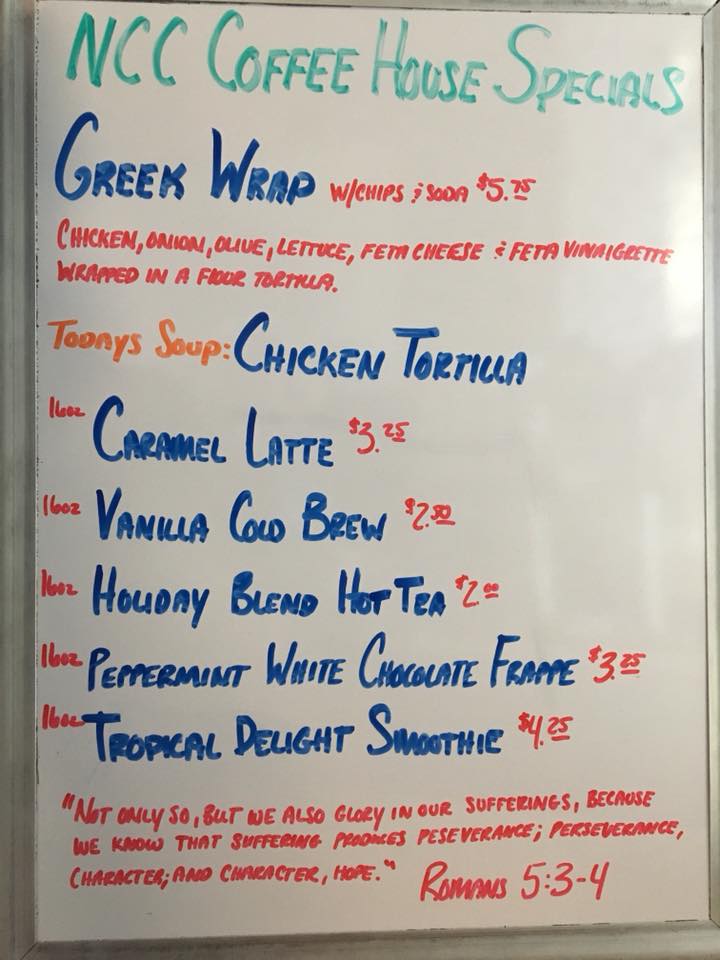 NCC COFFEE HOUSE SPECIALS
GREEK WRAP W/CHIPS & SODA $5.75
CHICKEN, ONION, OLIVE, LETTUCE, FETA CHEESE & FETA VINAIGRETTE
WRAPPED IN A FLOUR TORTILLA.
TODAYS SOUP: CHICKEN TORTILLA
16oz CARAMEL LATTE $3.25
16oz VANILLA COLD BREW $2.50
16oz HOLIDAY BLEND HOT TEA $2.00
16oz PEPPERMINT WHITE CHOCOLATE FRAPPE $3.25
16oz TROPICAL DELIGHT SMOOTHIE $4.25
"NOT ONLY SO, BUT WE ALSO GLORY IN OUR SUFFERINGS, BECAUSE
WE KNOW THAT SUFFERING PRODUCES PESEVERANCE; PERSEVERANCE,
CHARACTER; AND CHARACTER, HOPE." ROMANS 5:3-4